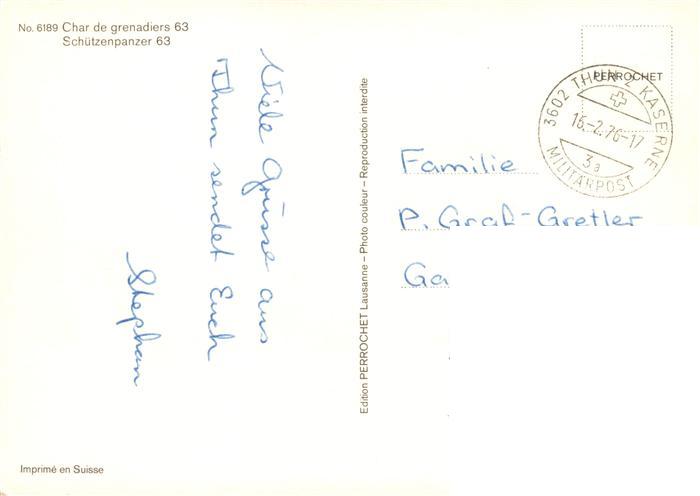 No. 6189 Char de grenadiers 63
Schützenpanzer 63
Viele Grüsse aus
Thun sendet Euch
Stephan
Edition PERROCHET Lausanne – Photo couleur – Reproduction interdite
PERROCHET
3602 THUN KASERNE
16.-2.76-17
3a
MILITÄRPOST
Familie
P. Graf-Gretler
Ga
Imprimé en Suisse